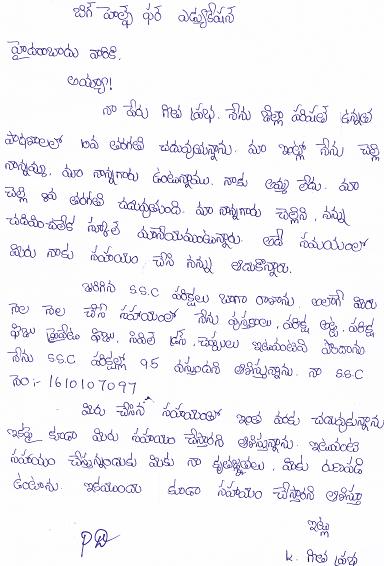 బిగ్ హెల్ప్ ఫర్ ఎడ్యుకేషన్
హైదరాబాదు వారికి.
అయ్యా!
నా పేరు గీత ప్రభ. నేను జిల్లా పరిషత్ ఉన్నత
పాఠశాలలో 10వ తరగతి చదువుతున్నాను. మా ఇంట్లో నేను చెల్లి
నాన్నమ్మ, మా నాన్నగారు ఉంటున్నాము. నాకు అమ్మ లేదు. మా
చెల్లి 8వ తరగతి చదువుతుంది. మా నాన్నగారు చెల్లిని, నన్ను
చదివించలేక స్కూల్ మానేయమంటున్నారు. అదే సమయంలో
మీరు నాకు సహాయం చేసి నన్ను ఆదుకొన్నారు.
జరిగిన S.S.C పరీక్షలు బాగా రాశాను. అలాగే మీరు
నెల నెల చేసే సహాయంలో నేను పుస్తకాలు, పరీక్ష అట్ట, పరీక్ష
ఫీజు ఫీజు, సివిల్ డ్రస్, చెప్పులు ఇటువంటివి పొందాను
నేను SSC పరీక్షల్లో 9.5 వస్తుందని ఆశిస్తున్నాను. నా SSC
నెం:- 1610107097
మీరు చేసిన సహాయంతో ఇంత వరకు చదువుకున్నాను
ఇకపై కూడా మీరు సహాయం చేస్తారని ఆశిస్తున్నాను. ఇటువంటి
సహాయం చేస్తున్నందుకు మీకు నా కృతజ్ఞతలు, మీకు రుణపడి
ఉంటాను. ఇకముందు కూడా సహాయం చేస్తారని ఆశిస్తూ
ఇట్లు
K. గీత ప్రభ